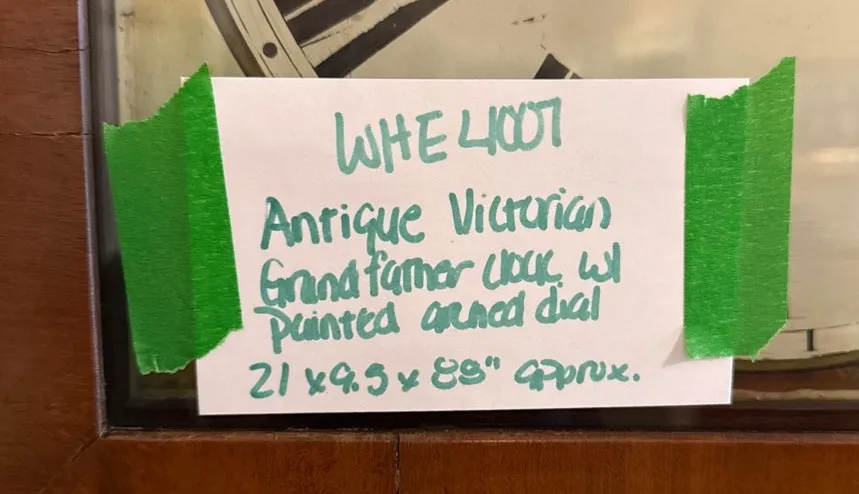 WHE 4007
Antique Victorian
Grandfather clock w/
painted arched dial
21 x 9.5 x 88" approx.